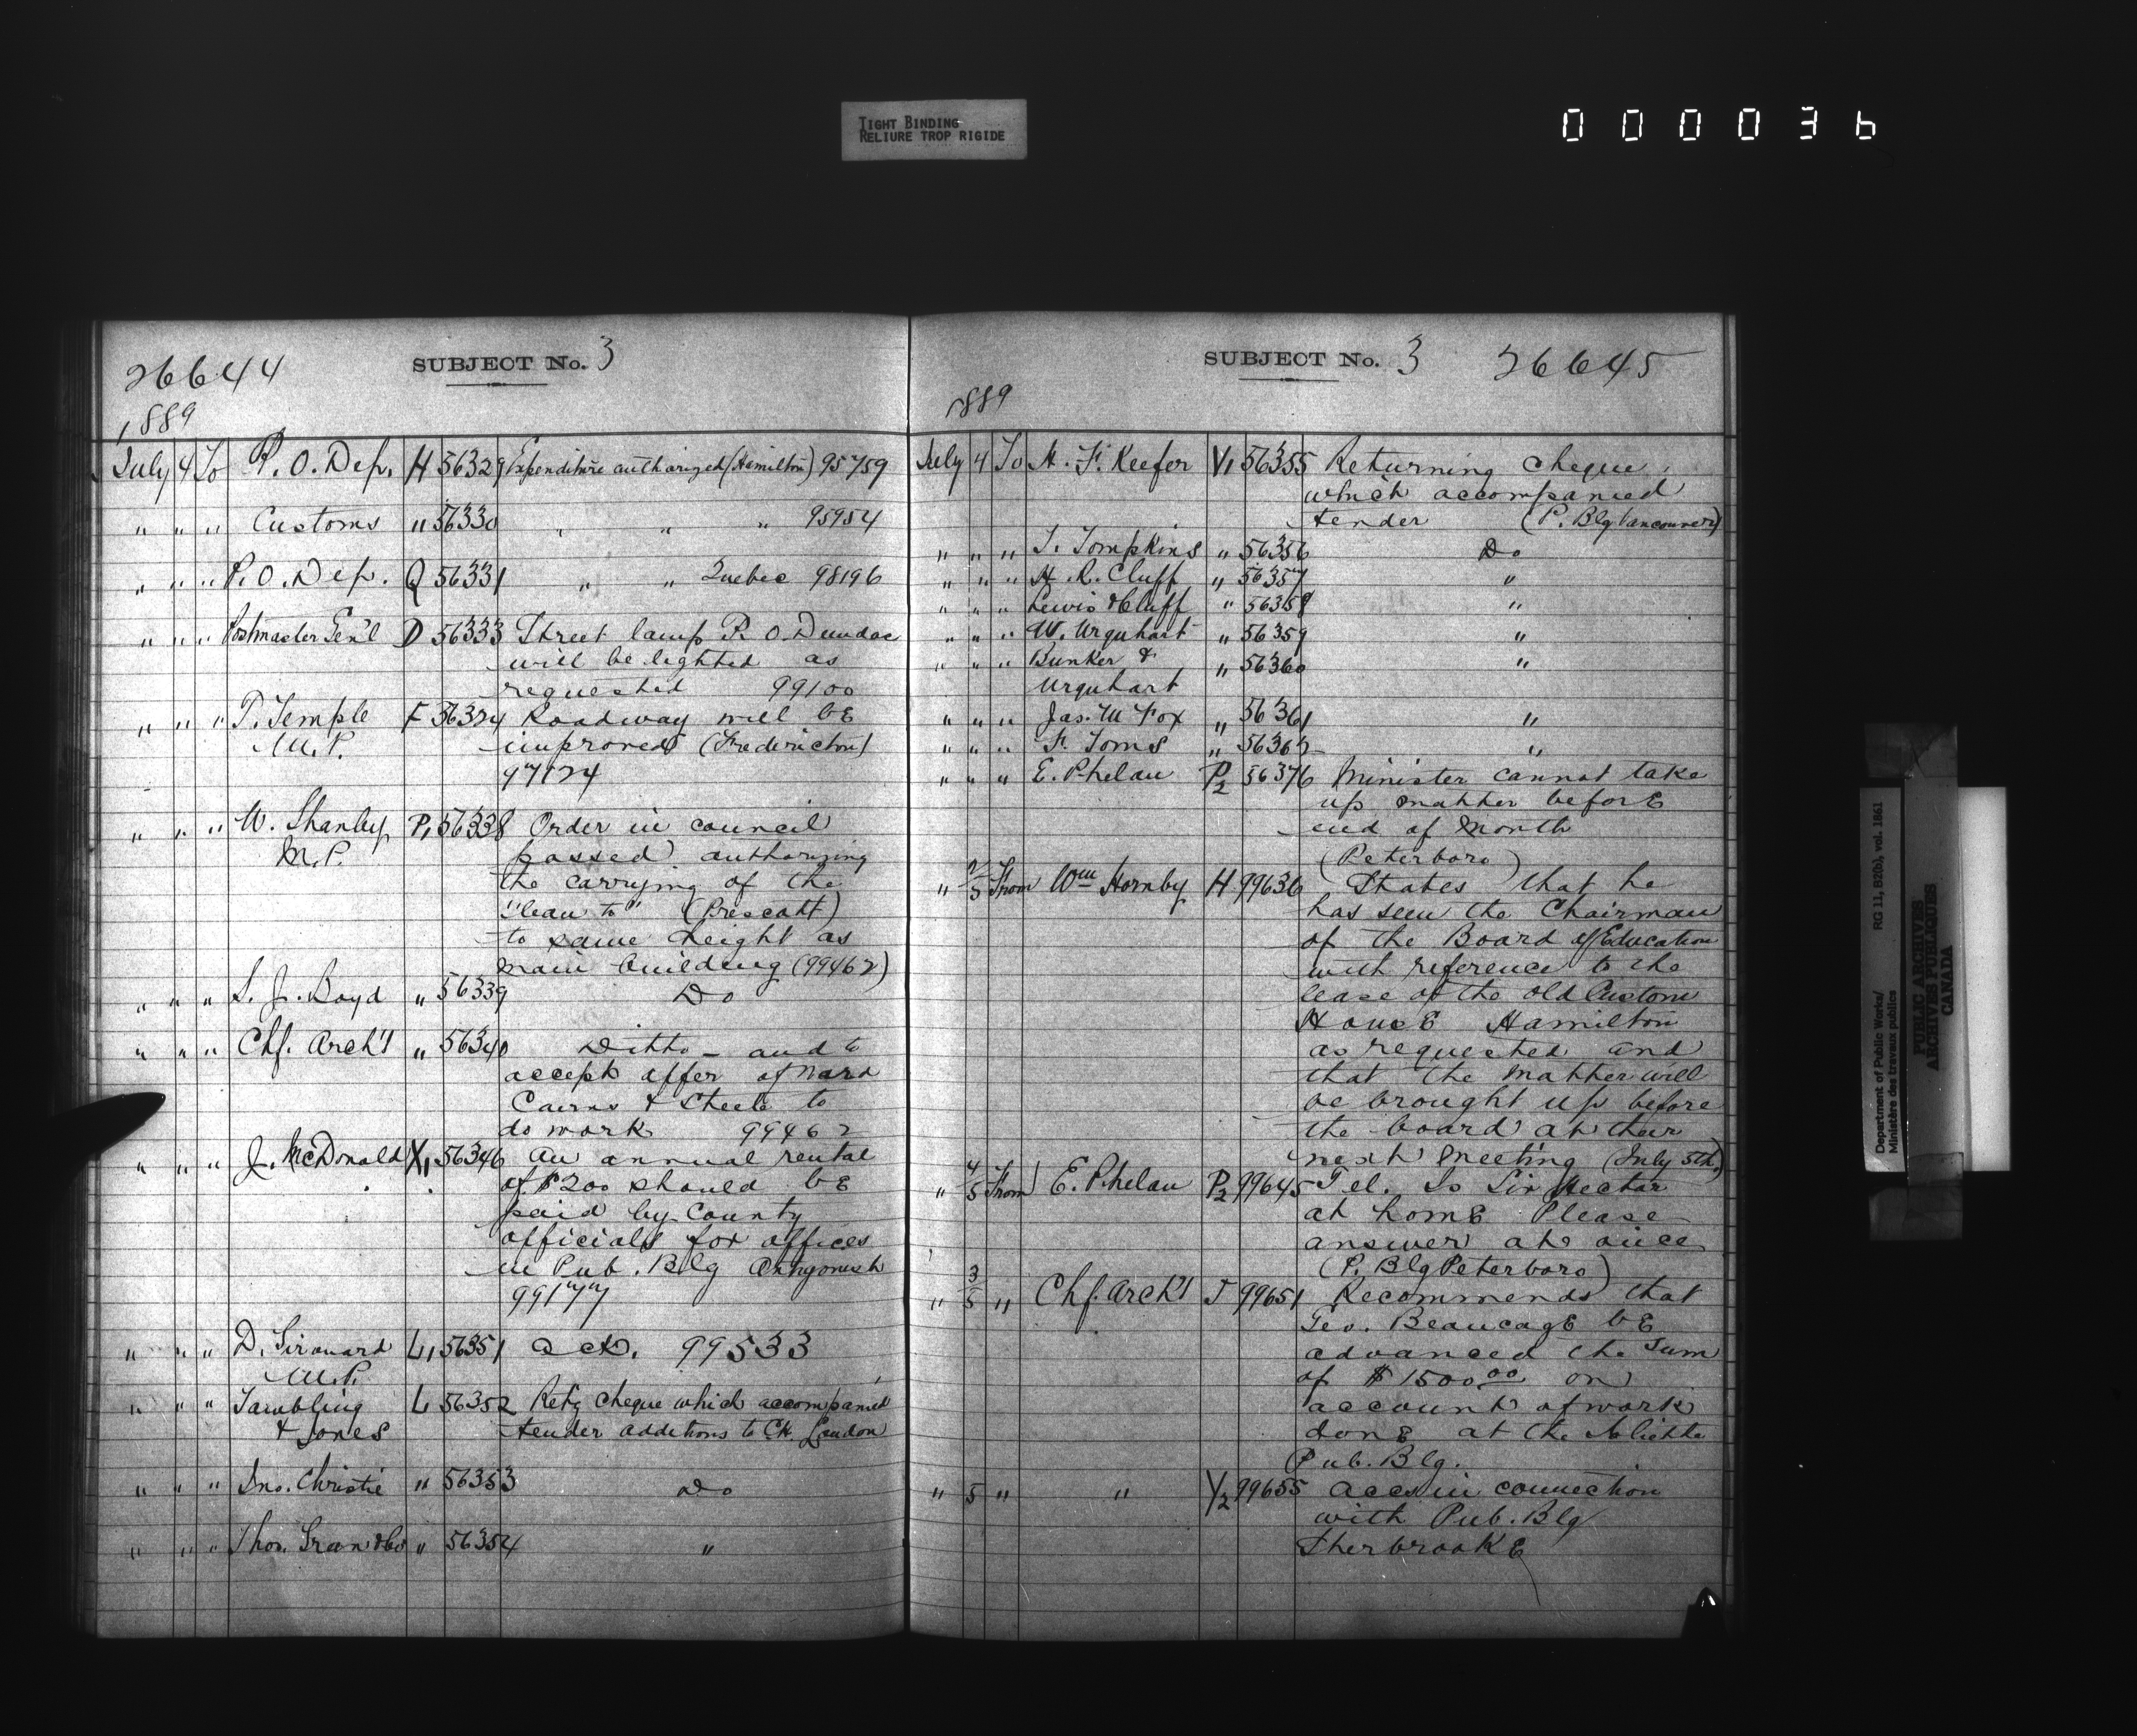 TIGHT BINDING
RELIURE TROP RIGIDE
000036
26644 SUBJECT No. 3
1889
July 4 To P. O. Dep. H 56329 Expenditure authorized (Hamilton) 95759
" " " Customs " 56330 " " " 95954
" " " P. O. Dep. Q 56331 " " Quebec 98196
" " " Postmaster Gen'l D 56333 Street lamp P. O. Dundas
will be lighted as
requested 99100
" " " T. Temple F 56334 Roadway will be
M.P. improved (Fredericton)
97124
" " " W. Shanly P1 56338 Order in council
M.P. passed authorizing
the carrying of the
"lean to" (Prescott)
to same height as
main building (99462)
" " " S. J. Boyd " 56339 Do
" " " Chf. Arch't " 56340 Ditto - and to
accept offer of Ward
Cairns & Steele to
do work 99462
" " " J. McDonald X1 56346 An annual rental
of $200 should be
paid by County
officials for offices
in Pub. Blg Antigonish
99177
" " " D. Girouard L1 56351 Ack. 99533
M.P.
" " " Tambling L 56352 Ret'g Cheque which accompanied
& Jones tender additions to C.H. London
" " " Jno. Christie " 56353 Do
" " " Thos. Green & Co " 56354 "
SUBJECT No. 3 26645
1889
July 4 To H. F. Keefer V1 56355 Returning cheque
which accompanied
tender (P. Blg Vancouver)
" " " T. Tompkins " 56356 Do
" " " H. R. Cluff " 56357 "
" " " Lewis & Cluff " 56358 "
" " " W. Urquhart " 56359 "
" " " Bunker & " 56360 "
Urquhart
" " " Jas. M Fox " 56361 "
" " " F. Toms " 56362 "
" " " E. Phelan P2 56376 Minister cannot take
up matter before
end of month
(Peterboro)
" 2/5 From Wm Hornby H 99636 States that he
has seen the Chairman
of the Board of Education
with reference to the
lease of the old Custom
House Hamilton
as requested and
that the matter will
be brought up before
the board at their
next meeting (July 5th)
" 4/5 From E. Phelan P2 99645 Tel. Is Sir Hector
at home Please
answer at once
(P. Blg Peterboro)
" 3/5 " Chf. Arch't J 99651 Recommends that
Geo. Beaucage be
advanced the sum
of $1500.00 on
account of work
done at the Joliette
Pub. Blg.
" 5 " " Y2 99655 Accs in connection
with Pub. Blg
Sherbrooke
Department of Public Works/ RG 11, B2(b), vol. 1861
Ministère des travaux publics
PUBLIC ARCHIVES
ARCHIVES PUBLIQUES
CANADA